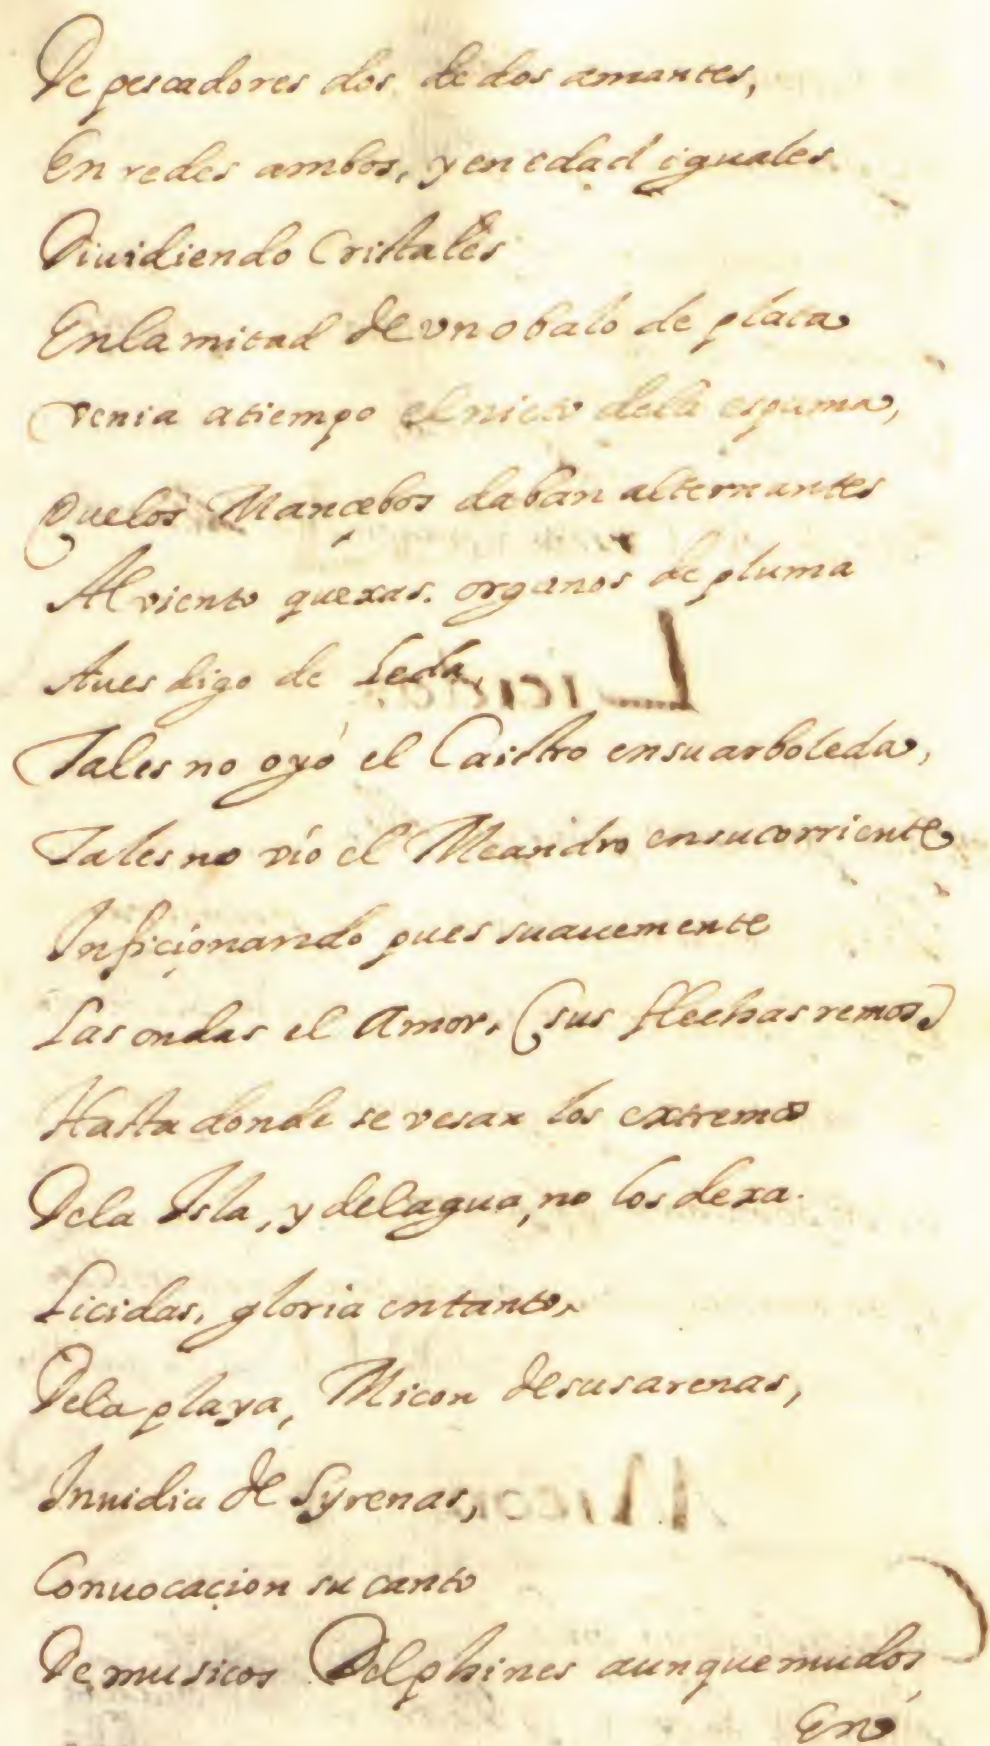 De pescadores dos, de dos amantes,
En redes ambos, y en edad iguales.
Diuidiendo Cristales
En la mitad de vn obalo de plata
venia a tiempo el nieto dela espuma,
Que los Mancebos daban alternantes
Al viento quexas. organos de pluma
Aues digo de Leda,
Tales no oyó el Caistro en su arboleda,
Tales no vió el Meandro en su corriente
Inficionando pues suauemente
Las ondas el Amor, (sus flechas remos,)
Hasta donde se vesan los extremos
Dela Isla, y del agua, no los dexa.
Licidas, gloria en tanto,
Dela playa, Micon de sus arenas,
Inuidia de Syrenas,
Conuocacion su canto
De musicos Delphines aunque mudos
En